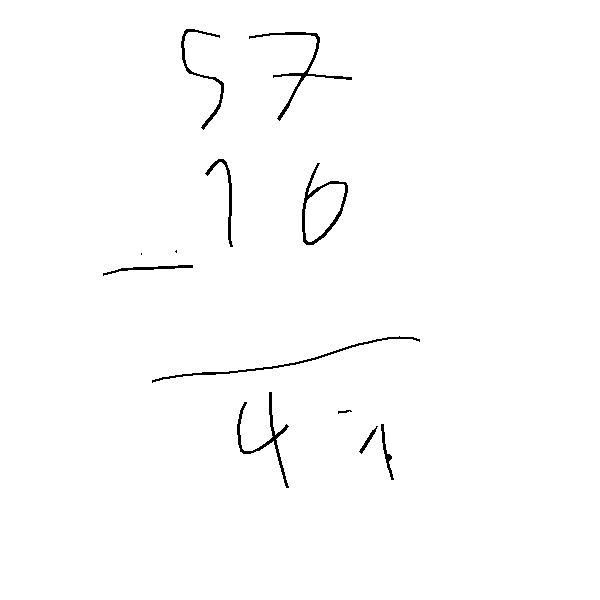 57
16
—
4 - 1